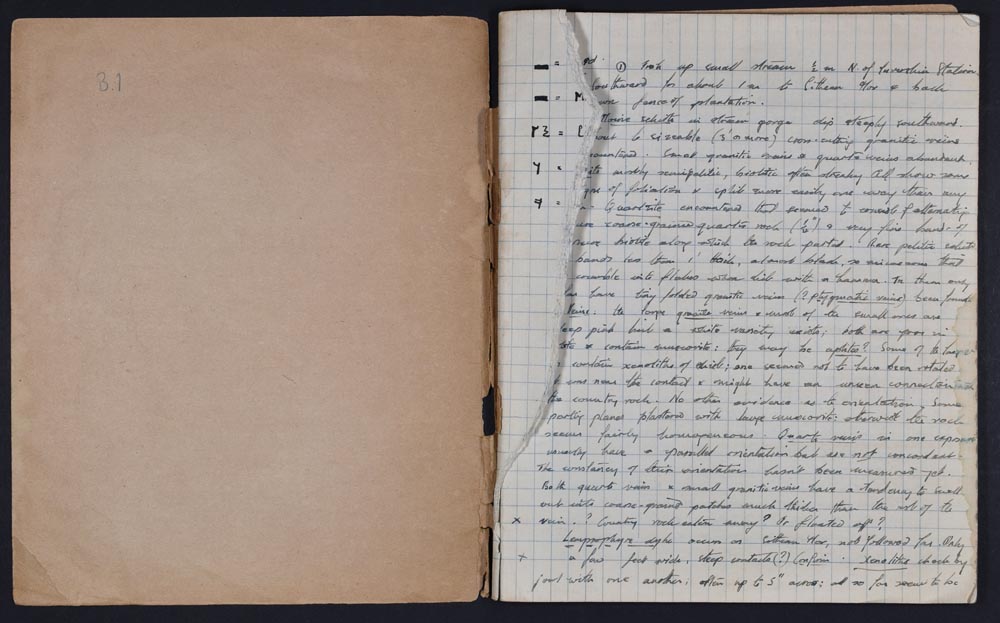 B.1
① Trek up small stream ½ m N. of Station
southward for about 1 m to & back
fence of plantation.
Moine schists in stream gorge dip steeply southward.
to sizeable (3' or more) cross-cutting granitic veins
encountered. Small granitic veins & quartz veins abundant.
mostly semipelitic, biotite often streaky. All show some
of foliation & split more easily one way than any
Quartzite encountered that seemed to consist of alternating
coarse-grained quartz rock (½") & very fine bands of
biotite along which the rock parted. Rare pelitic schist
bands less than 1' thick, almost black, so micaceous that
crumble into flakes when hit with a hammer. In them only
have tiny folded granitic veins (? ptygmatic veins) been found.
Veins: the large granite veins & most of the small ones are
deep pink but a white variety exists; both are poor in
& contain muscovite: they may be aplites? Some of the larger
contain xenoliths of schist; one seemed not to have been rotated
was near the contact & might have an unseen connection
the country rock. No other evidence as to orientation. Some
partly planes plastered with large muscovite: otherwise the rock
seems fairly homogeneous. Quartz veins in one exposure
usually have a parallel orientation but are not concordant.
The constancy of their orientation hasn't been measured yet.
Both quartz veins & small granitic veins have a tendency to swell
out into coarse-grained patches much thicker than the rest of the
x vein. ? Country rock eaten away? Or floated off?
Lamprophyre dyke occurs on, not followed far. Only
x a few feet wide, steep contacts (?) Confirm. xenoliths cheek by
jowl with one another; often up to 5" across; all so far seem to be